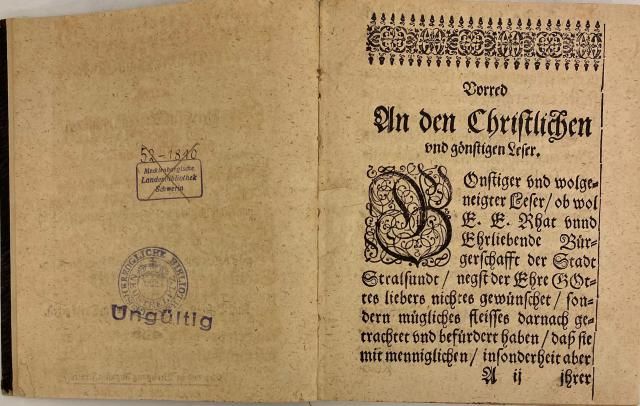 52-1816
Mecklenburgische
Landesbibliothek
Schwerin
Ungültig
Vorred
An den Christlichen
vnd gönstigen Leser.
GOnstiger vnd wolge-
neigter Leser/ ob wol
E. E. Rhat vnnd
Ehrliebende Bür-
gerschafft der Stadt
Stralsundt/ negst der Ehre GOt-
tes liebers nichtes gewünschet/ son-
dern mügliches fleisses darnach ge-
trachtet vnd befürdert haben/ daß sie
mit menniglichen/ insonderheit aber
A ij jhrer